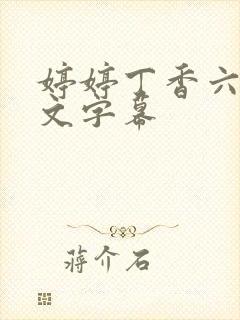 婷婷丁香六
文字幕
蒋介石